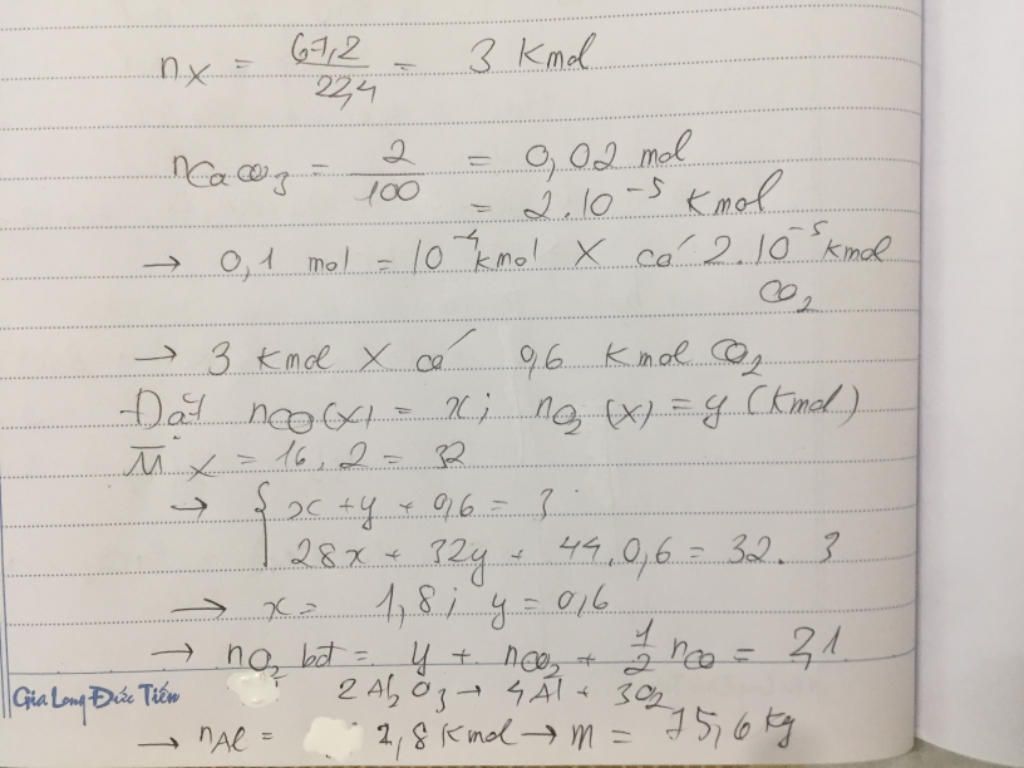 nX = 67,2/22,4 = 3 Kmol
nCaCO3 = 2/100 = 0,02 mol
= 2.10^-5 Kmol
→ 0,1 mol = 10^-4 kmol X có 2.10^-5 kmol
CO2
→ 3 Kmol X có 0,6 Kmol CO2
Đặt nCO(X) = x; nO2 (X) = y (Kmol)
M̅ X = 16.2 = 32
→ { x + y + 0,6 = 3
28x + 32y + 44.0,6 = 32.3
→ x = 1,8; y = 0,6
→ nO2 bđ = y + nCO2 + 1/2 nCO = 2,1
2Al2O3 → 4Al + 3O2
Gia Long Đức Tiến
→ nAl = 2,8 Kmol → m = 75,6 kg